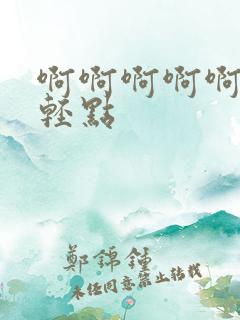 啊啊啊啊啊
輕點
鄭錦鍾
未经同意禁止转载